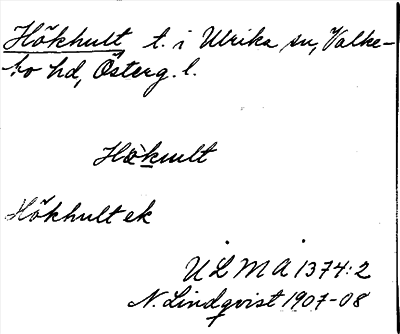 Hökhult t. i Ulrika sn, Valke-
bo hd, Österg. l.
Hökhult ek
ULMA 1374:2
N. Lindqvist 1907-08